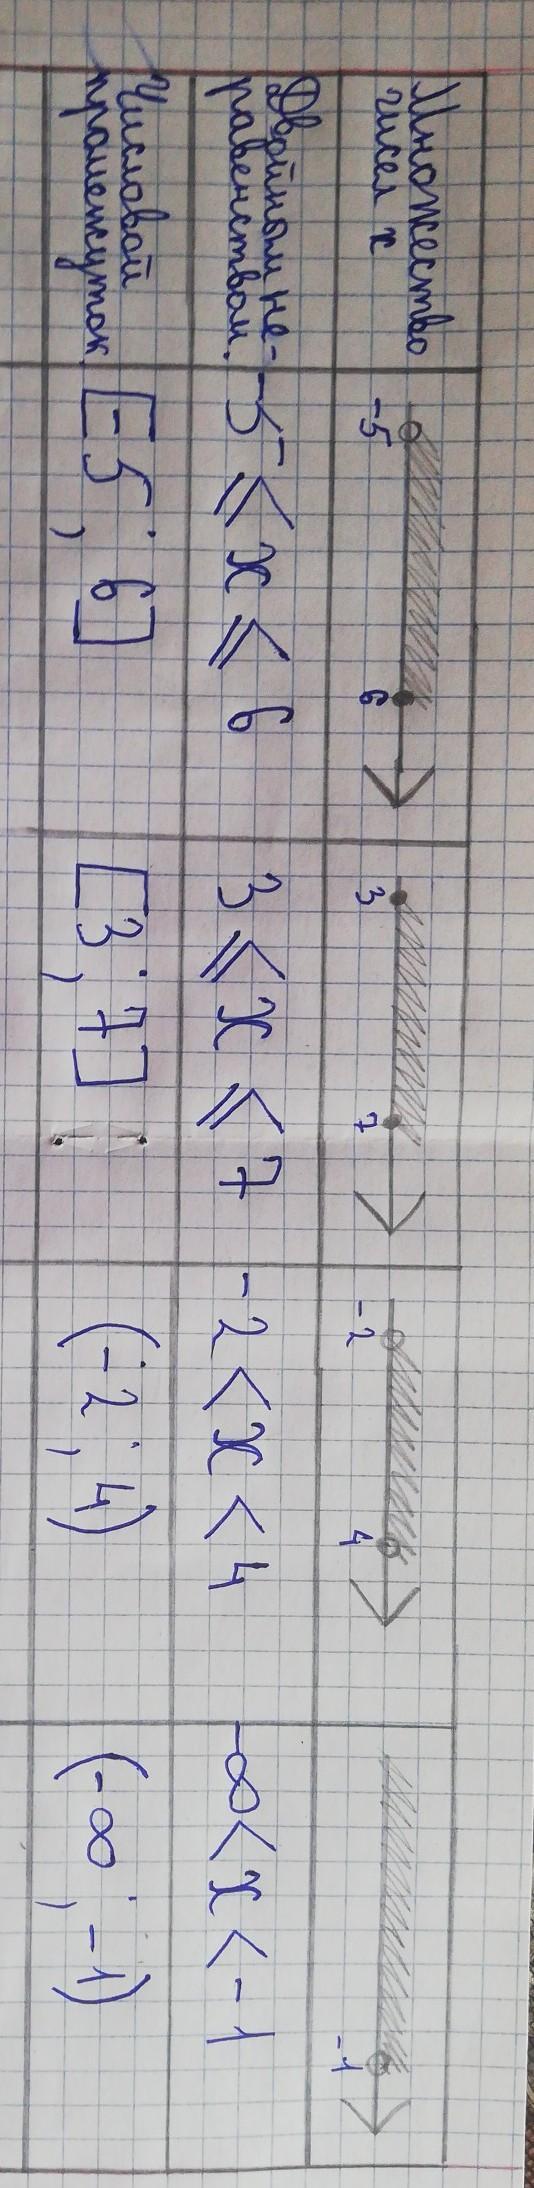 Множество
чисел x
-5 6
3 7
-2 4
-1
Двойным не-
равенством.
-5 ⩽ x ⩽ 6
3 ⩽ x ⩽ 7
-2 < x < 4
-∞ < x < -1
Числовой
промежуток
[-5; 6]
[3; 7]
(-2; 4)
(-∞; -1)